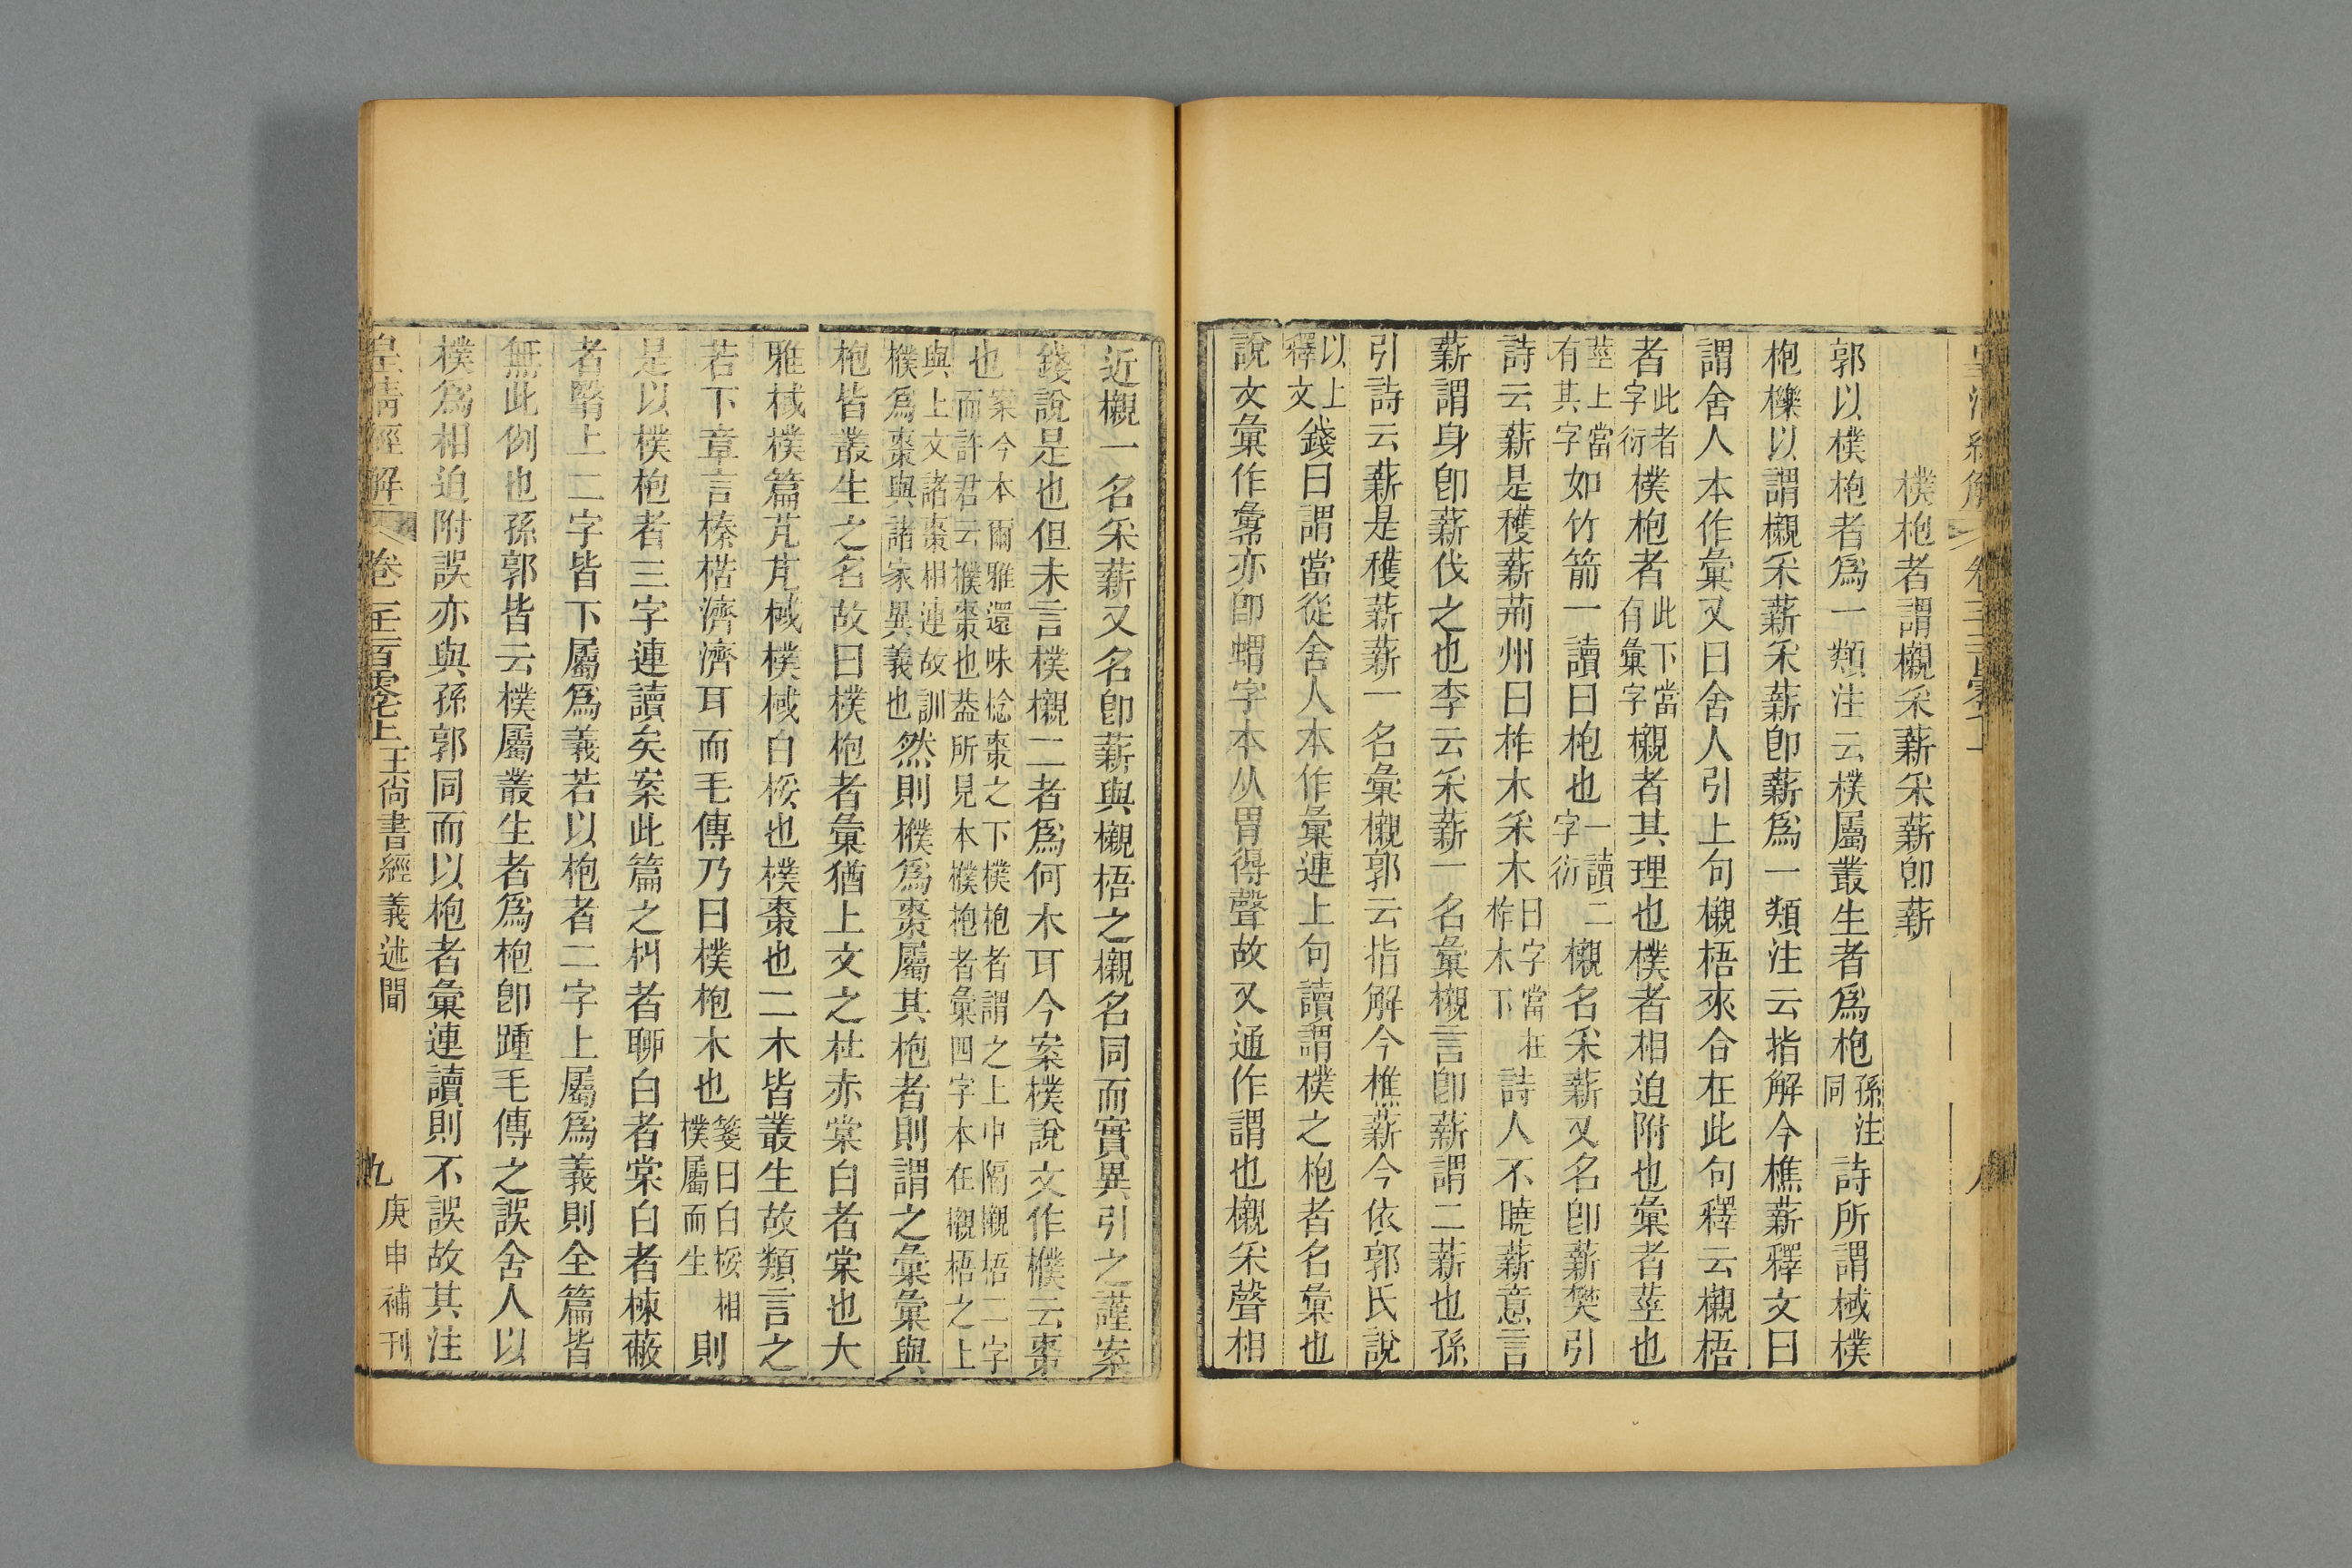 樸枹者謂櫬采薪采薪卽薪
郭以樸枹者爲一類注云樸屬叢生者爲枹孫注同詩所謂棫樸
枹櫟以謂櫬采薪采薪卽薪爲一類注云指解今樵薪釋文曰
謂舍人本作彙又曰舍人引上句櫬梧來合在此句釋云櫬梧
者此者字衍樸枹者此下當有彙字櫬者其理也樸者相迫附也彙者莖也
莖上當有其字如竹箭一讀曰枹也一讀二字衍櫬名采薪又名卽薪樊引
詩云薪是穫薪荊州曰柞木采木曰字當在柞木下詩人不曉薪意言
薪謂身卽薪伐之也李云采薪一名彙櫬言卽薪謂二薪也孫
引詩云薪是穫薪薪一名彙櫬郭云指解今樵薪今依郭氏說
以上釋文錢曰謂當從舍人本作彙連上句讀謂樸之枹者名彙也
說文彙作㣇亦卽蝟字本从胃得聲故又通作謂也櫬采聲相
近櫬一名采薪又名卽薪與櫬梧之櫬名同而實異引之謹案
錢說是也但未言樸櫬二者爲何木耳今案樸說文作樸云棗
也案今本爾雅還味棯棗之下樸枹者謂之上中隔櫬梧二字而許君云樸棗也葢所見本樸枹者彙四字本在櫬梧之上
與上文諸棗相連故訓樸爲棗與諸家異義也然則樸爲棗屬其枹者則謂之彙彙與
枹皆叢生之名故曰樸枹者彙猶上文之杜赤棠白者棠也大
雅棫樸篇芃芃棫樸棫白桵也樸棗也二木皆叢生故類言之
若下章言榛楛濟濟耳而毛傳乃曰樸枹木也箋曰白桵相樸屬而生則
是以樸枹者三字連讀矣案此篇之朻者聊白者棠白者棟蔽
者翳上二字皆下屬爲義若以枹者二字上屬爲義則全篇皆
無此例也孫郭皆云樸屬叢生者爲枹卽踵毛傳之誤舍人以
樸爲相迫附誤亦與孫郭同而以枹者彙連讀則不誤故其注
皇淸經解 卷一千二百零七上 王尙書經義述聞 九 庚申補刊